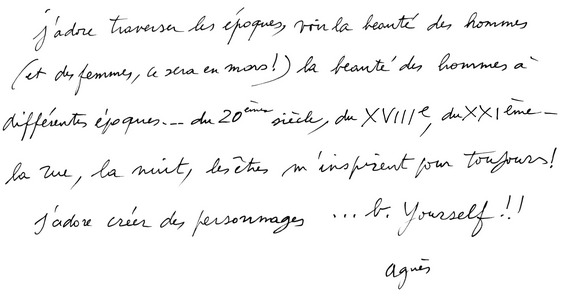 j'adore traverser les époques, voir la beauté des hommes
(et des femmes, ce sera en mars!) la beauté des hommes à
différentes époques... du 20ème siècle, du XVIIIe, du XXIème -
la rue, la nuit, les êtres m'inspirent pour toujours!
j'adore créer des personnages ... b. yourself!!
agnès